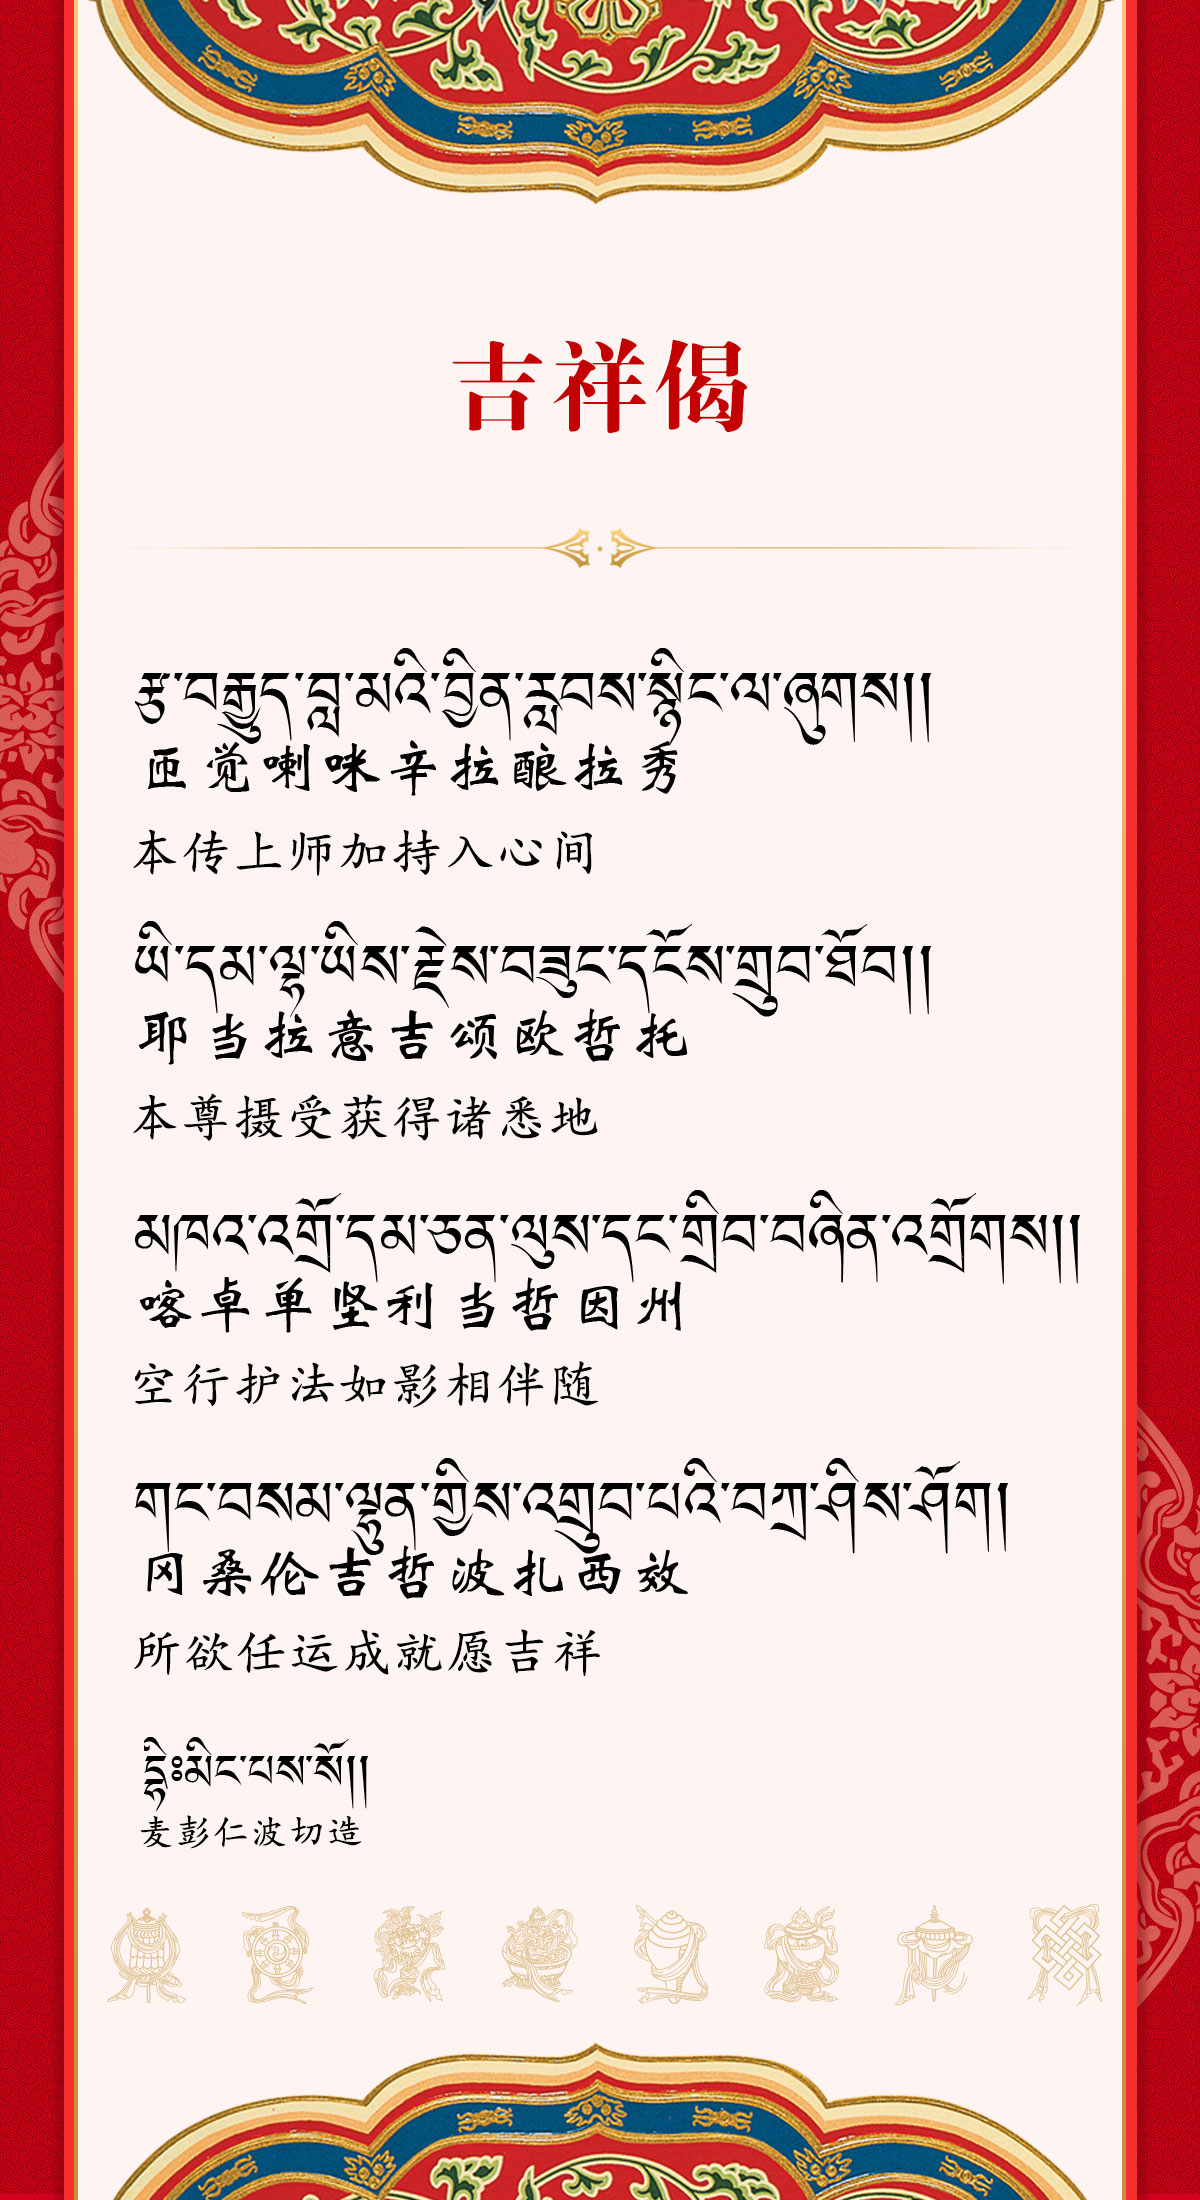 吉祥偈
རྩ་བརྒྱུད་བླ་མའི་བྱིན་རླབས་སྙིང་ལ་ཞུགས།།
匝觉喇咪辛拉酿拉秀
本传上师加持入心间
ཡི་དམ་ལྷ་ཡིས་རྗེས་བཟུང་དངོས་གྲུབ་ཐོབ།།
耶当拉意吉颂欧哲托
本尊摄受获得诸悉地
མཁའ་འགྲོ་དམ་ཅན་ལུས་དང་གྲིབ་བཞིན་འགྲོགས།།
喀卓单坚利当哲因州
空行护法如影相伴随
གང་བསམ་ལྷུན་གྱིས་འགྲུབ་པའི་བཀྲ་ཤིས་ཤོག།
冈桑伦吉哲波扎西效
所欲任运成就愿吉祥
དྷཱིཿམིང་པས་སོ།།
麦彭仁波切造